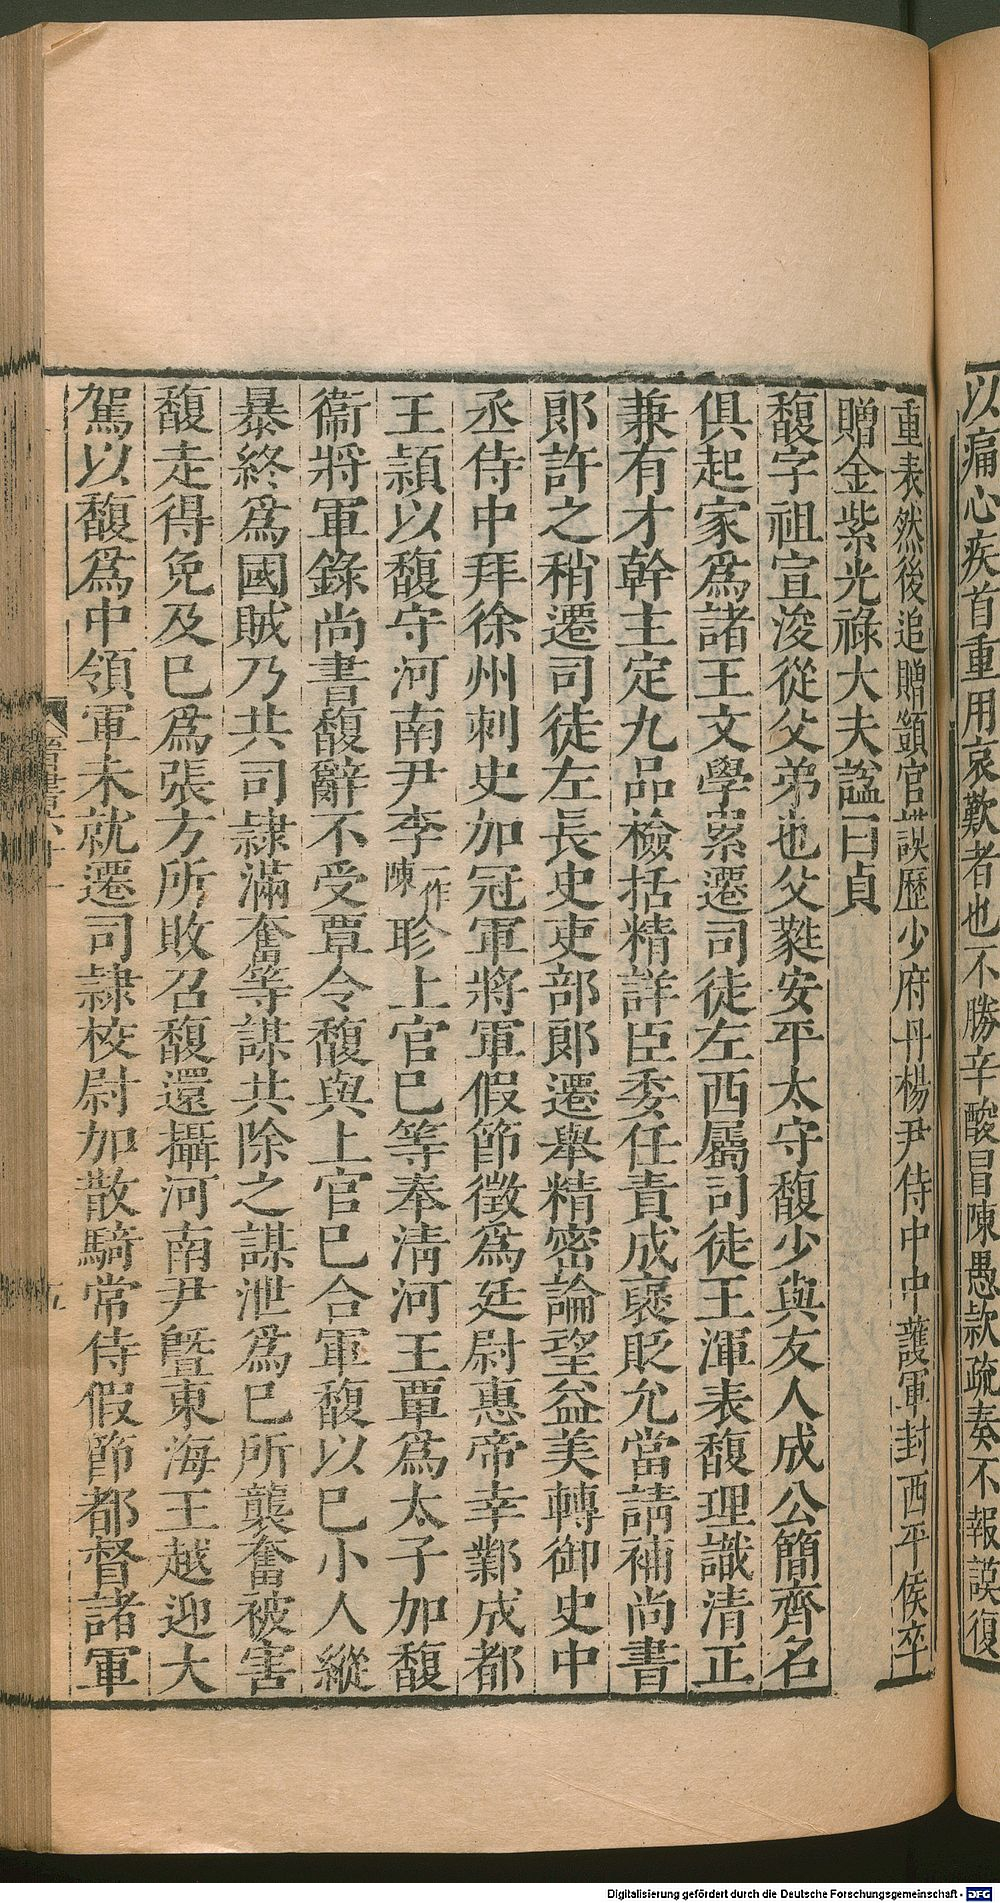 以痛心疾首重用哀歎者也不勝辛酸冒陳愚款疏奏不報謨復
重表然後追贈顗官謨歷少府丹楊尹侍中中護軍封西平侯卒
贈金紫光祿大夫諡曰貞
馥字祖宣浚從父弟也父蕤安平太守馥少與友人成公簡齊名
俱起家爲諸王文學累遷司徒左西屬司徒王渾表馥理識清正
兼有才幹主定九品檢括精詳臣委任責成襃貶允當請補尚書
郞許之稍遷司徒左長史吏部郞遷舉精密論望益美轉御史中
丞侍中拜徐州刺史加冠軍將軍假節徵爲廷尉惠帝幸鄴成都
王穎以馥守河南尹李一作陳昣上官巳等奉淸河王覃爲太子加馥
衞將軍錄尚書馥辭不受覃令馥與上官巳合軍馥以巳小人縱
暴終爲國賊乃共司隷滿奮等謀共除之謀泄爲巳所襲奮被害
馥走得免及巳爲張方所敗召馥還攝河南尹暨東海王越迎大
駕以馥爲中領軍未就遷司隷校尉加散騎常侍假節都督諸軍
Digitalisierung gefördert durch die Deutsche Forschungsgemeinschaft - DFG